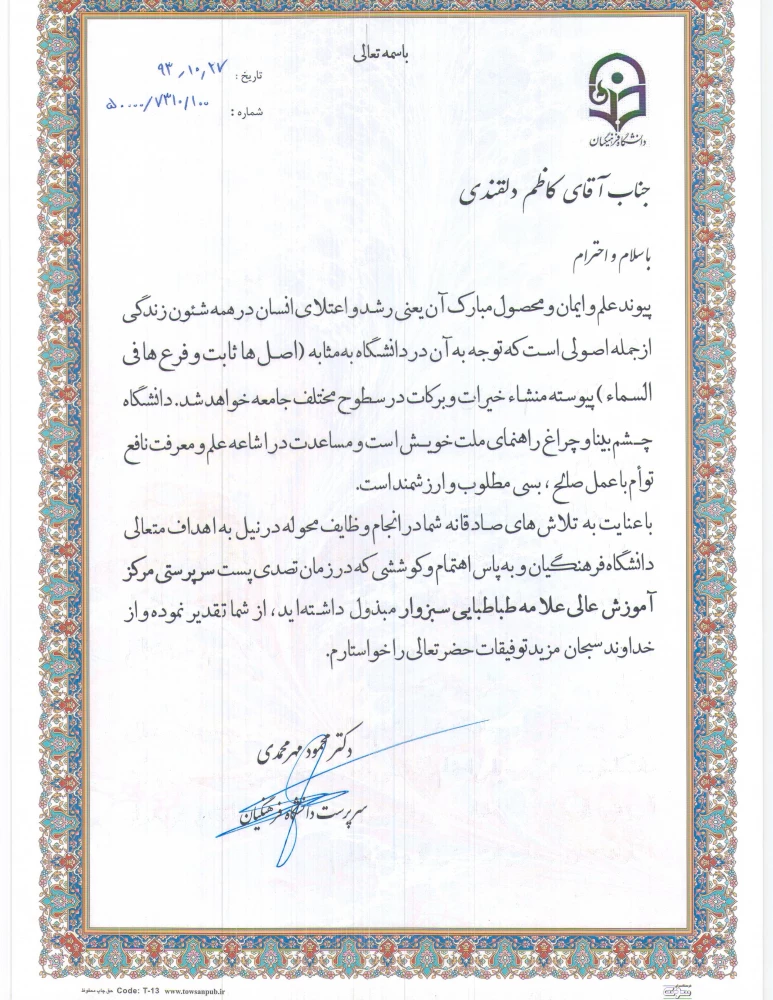 باسمه تعالی
تاریخ : ۹۳٫۱۰٫۲۷
شماره : ۵۰۰۰۰/۷۳۱۰/۱۰۰
دانشگاه فرهنگیان
جناب آقای کاظم دلقندی
با سلام و احترام
پیوند علم و ایمان و محصول مبارک آن یعنی رشد و اعتلای انسان در همه شئون زندگی
از جمله اصولی است که توجه به آن در دانشگاه به مثابه (اصل ها ثابت و فرع ها فی
السماء) پیوسته منشاء خیرات و برکات در سطوح مختلف جامعه خواهد شد. دانشگاه
چشم بینا و چراغ راهنمای ملت خویش است و مساعدت در اشاعه علم و معرفت نافع
توأم با عمل صالح ، بسی مطلوب و ارزشمند است.
با عنایت به تلاش های صادقانه شما در انجام وظایف محوله در نیل به اهداف متعالی
دانشگاه فرهنگیان و به پاس اهتمام و کوششی که در زمان تصدی پست سرپرستی مرکز
آموزش عالی علامه طباطبایی سبزوار مبذول داشته اید ، از شما تقدیر نموده و از
خداوند سبحان مزید توفیقات حضرتعالی را خواستارم.
دکتر محمود مهرمحمدی
سرپرست دانشگاه فرهنگیان
حق چاپ محفوظ Code: T-13 www.towsanpub.ir